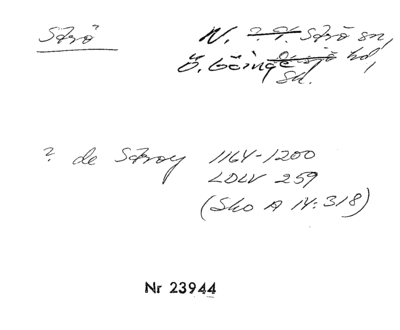 Strö N. Strö sn,
Ö. Göinge hd,
Sk.
? de Stroy 1164-1200
LDLV 259
(Sko A IV:318)
Nr 23944